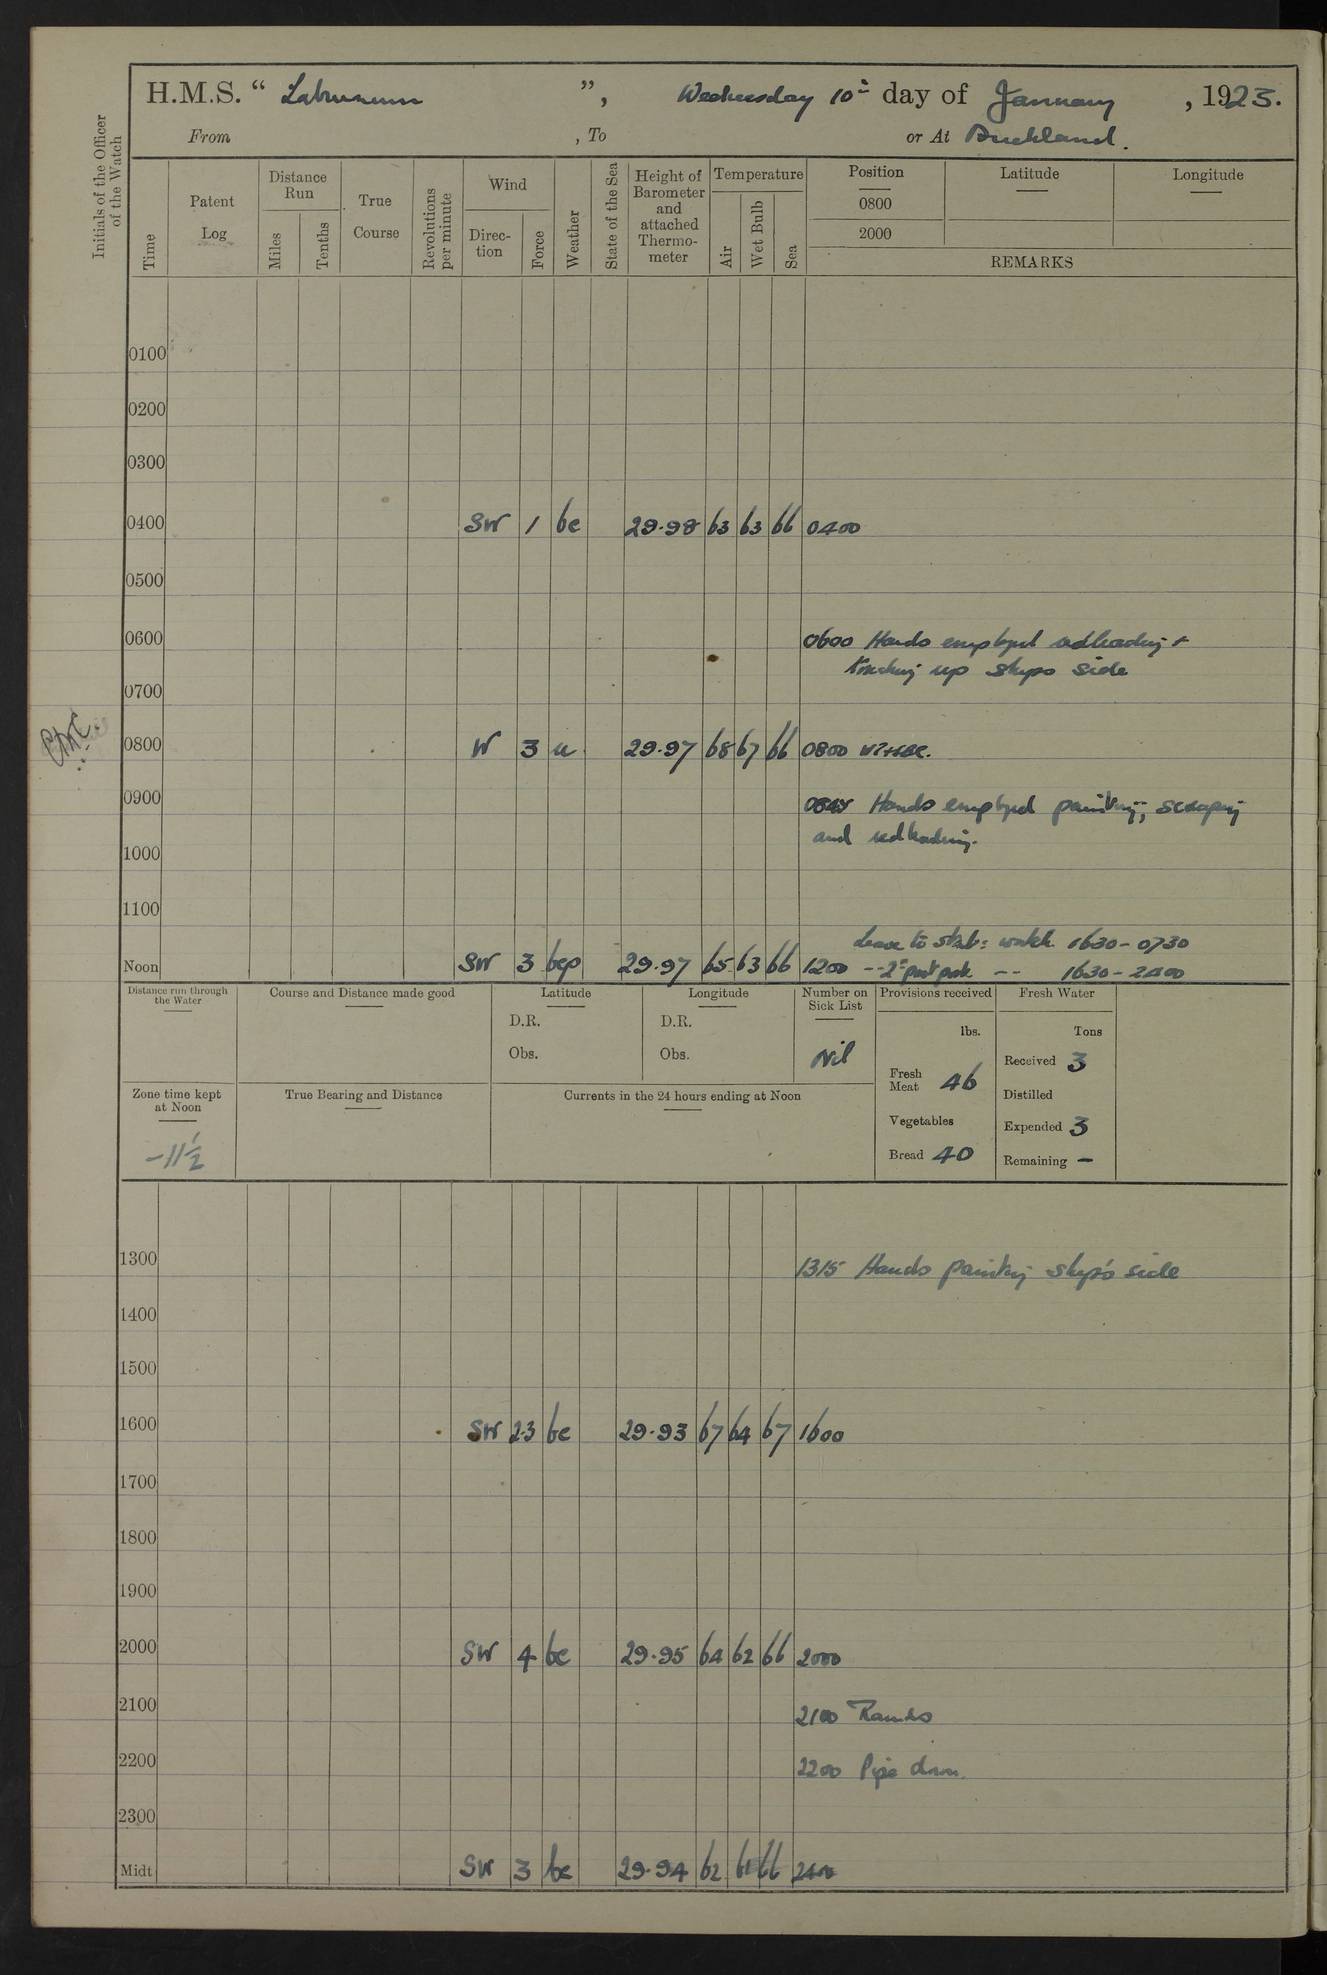 H.M.S. “ Laburnum ”, Wednesday 10th day of January, 1923.
From , To or At Auckland.
Initials of the Officer of the Watch
Time
Patent Log
Distance Run
Miles
Tenths
True Course
Revolutions per minute
Wind
Direc-tion
Force
Weather
State of the Sea
Height of Barometer and attached Thermo-meter
Temperature
Air
Wet Bulb
Sea
Position
0800
2000
Latitude
Longitude
REMARKS
0100
0200
0300
0400 SW 1 bc 29.98 63 63 66 0400
0500
0600 0600 Hands employed redleading +
touching up ships side
0700
0800 W 3 29.97 68 67 66 0800
0900 0845 Hands employed painting, scraping
and redleading.
1000
1100
Leave to Stab: watch 1630 - 0730
Noon SW 3 bcp 29.97 65 63 66 1200 -- 2nd part port -- 1630 - 2400
Distance run through the Water
Course and Distance made good
Latitude
D.R.
Obs.
Longitude
D.R.
Obs.
Number on Sick List
Nil
Provisions received
lbs.
Fresh Meat 46
Vegetables
Bread 40
Fresh Water
Tons
Received 3
Distilled
Expended 3
Remaining -
Zone time kept at Noon
-11½
True Bearing and Distance
Currents in the 24 hours ending at Noon
1300 1315 Hands painting ship's side
1400
1500
1600 SW 2.3 bc 29.93 67 64 67 1600
1700
1800
1900
2000 SW 4 bc 29.95 64 62 66 2000
2100 2100 Rounds
2200 2200 Pipe down.
2300
Midt SW 3 bc 29.94 62 61 66 2400